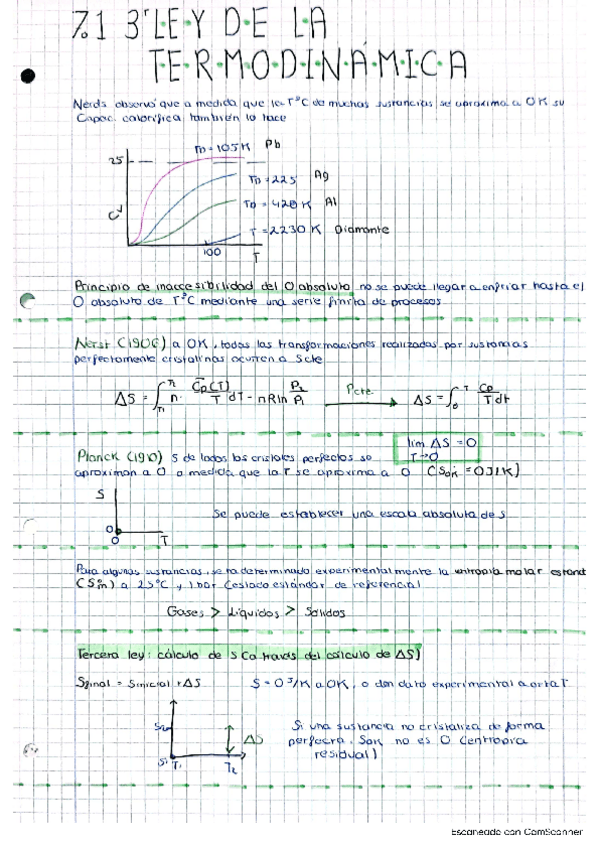 7.1 3ª LEY DE LA
TERMODINÁMICA
observó que a medida que la Tª C de muchas sustancias se aproxima a 0K su
Capac. calorífica también lo hace
TD = 105K Pb
25
TD = 225 Ag
TD = 428 K Al
T = 2230 K Diamante
100 T
Principio de inaccesibilidad del 0 absoluto no se puede llegar a enfriar hasta el
0 absoluto de TªC mediante una serie finita de procesos
Nerst (1906) a 0K, todas las transformaciones realizadas por sustancias
perfectamente cristalinas ocurren a S cte
ΔS = ∫ n · Cp(T)/T dT - nRln P2/P1 P cte. ΔS = ∫₀ᵀ Cp/T dt
lim ΔS = 0
T→0
Planck (1910) S de todos los cristales perfectos se
aproximan a 0 a medida que la T se aproxima a 0 (S0K = 0J/K)
S
0
0 T
Se puede establecer una escala absoluta de S
Para algunas sustancias, se ha determinado experimentalmente la entropia molar estand
(S°m) a 25°C y 1 bar (estado estándar de referencia)
Gases > Líquidos > Sólidos
Tercera ley: cálculo de S (a través del cálculo de ΔS)
Sfinal = Sinicial + ΔS S = 0 J/K a 0K, o dan dato experimental a otra T
S2
ΔS
S1 T1 T2
Si una sustancia no cristaliza de forma
perfecta, S0K no es 0 (entropia
residual)
Escaneado con CamScanner